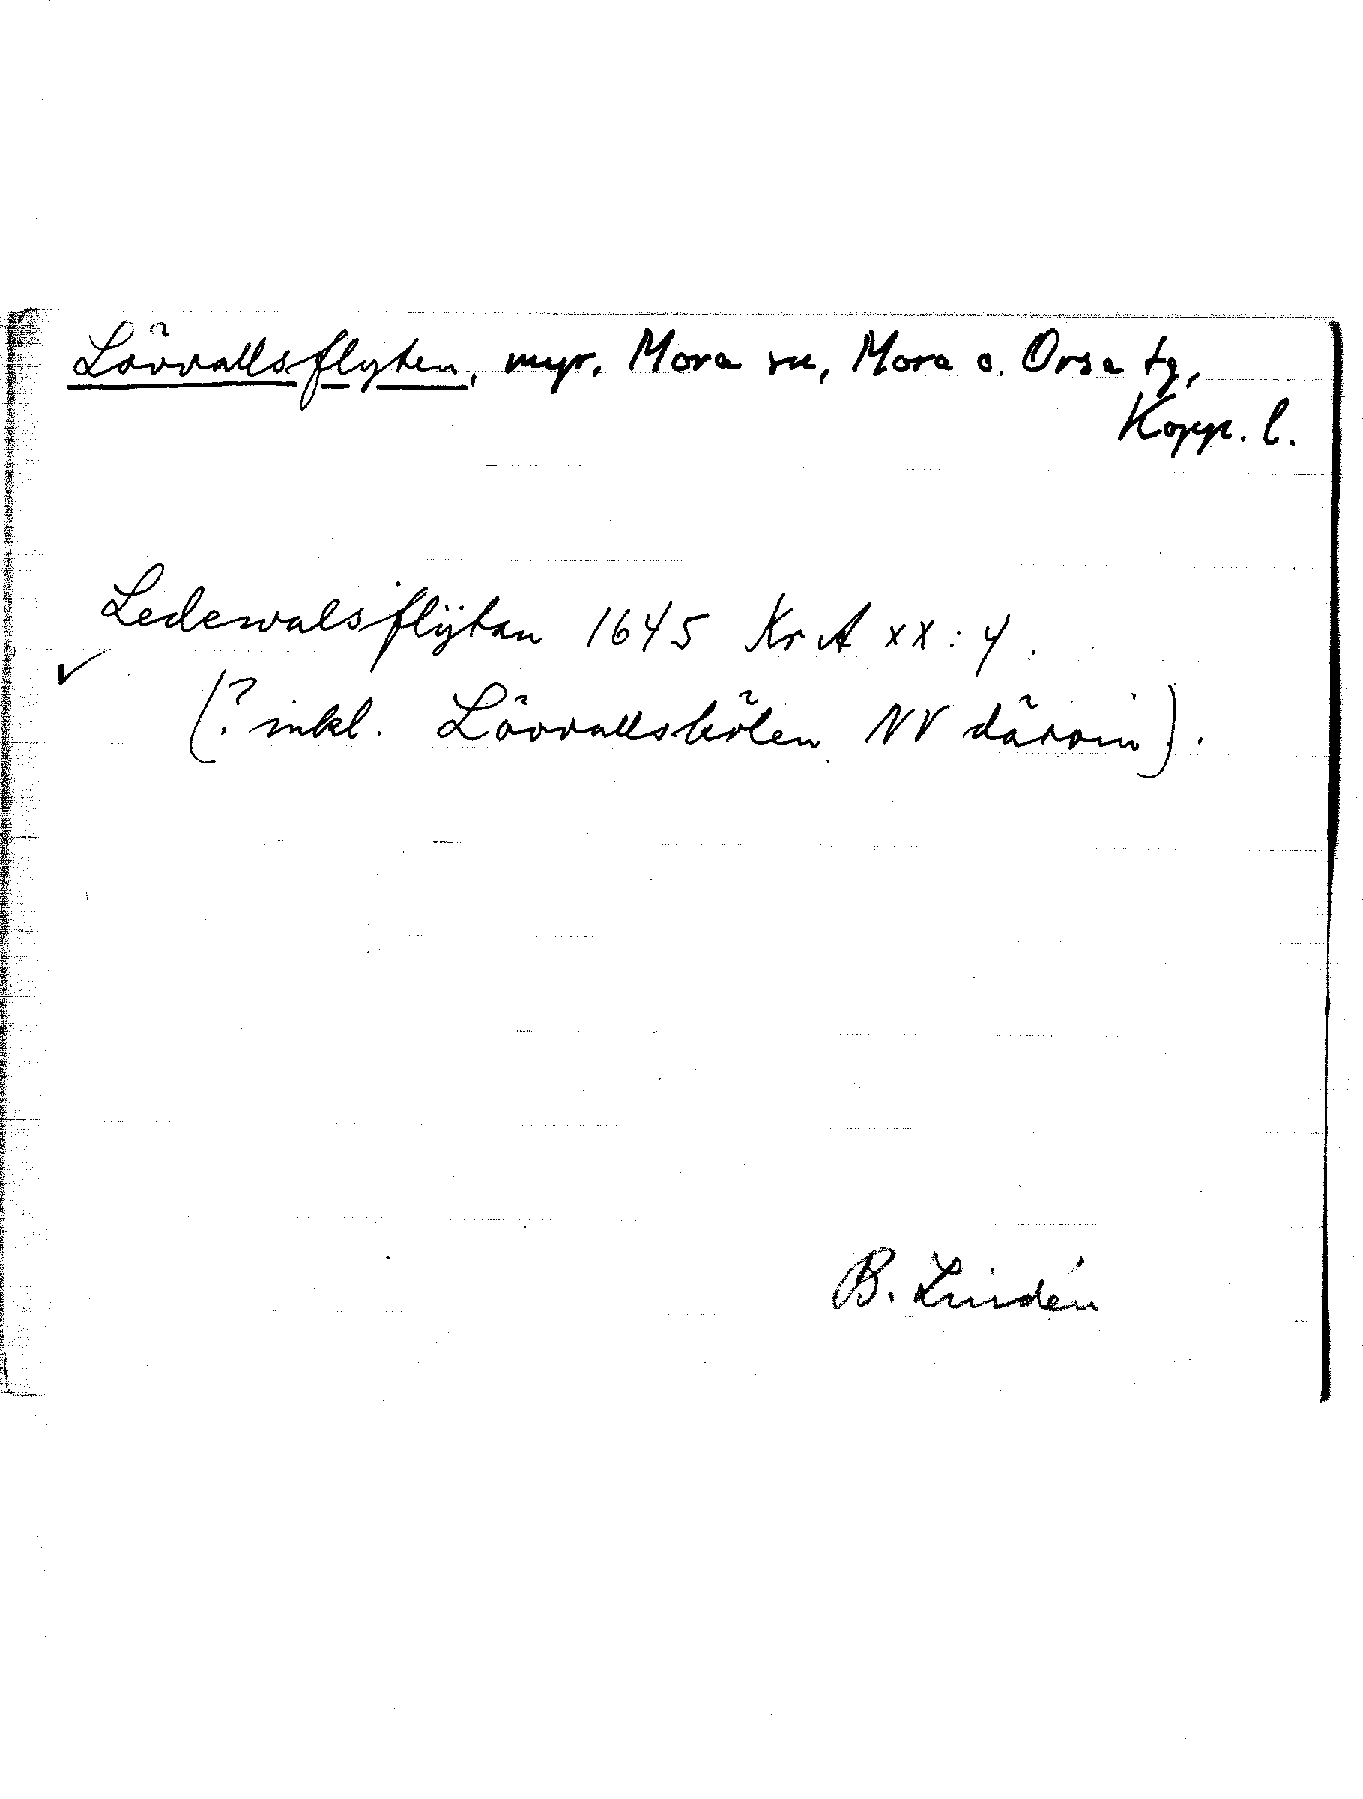 Lövvallsflyten, myr. Mora sn, Mora o. Orsa tg,
Kopp. l.
Ledewalsflÿtan 1645 KrA XX:4.
✓
(? inkl. Lövvallskölen NV därom).
B. Lindén